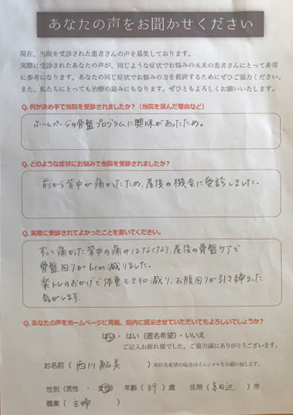 あなたの声をお聞かせください
現在、当院を受診された患者さんの声を募集しております。
実際に受診されたあなたの声が、同じような症状でお悩みの未来の患者さんにとって非常
に参考になります。あなたの同じ症状でお悩みの方を救済するためにぜひご協力ください。
また、私たちにとっても治療の励みにもなります。ぜひともよろしくお願いいたします。
Q. 何が決め手で当院を受診されましたか？（当院を選んだ理由など）
ホームページの骨盤プログラムに興味があったため。
Q. どのような症状にお悩みで当院を受診されましたか？
前から背中が痛かったため、産後の機会に受診しました。
Q. 実際に受診されてよかったことを書いてください。
すごく痛かった背中の痛みはなくなり、産後の骨盤ケアで
骨盤回りが1cm減りました。
楽トレのおかげで体重も3キロ減り、お腹回りが引き締まった
気がします。
Q. あなたの声をホームページに掲載、院内に掲示させていただいてもよろしいでしょうか？
はい・はい（匿名希望）・いいえ
ご記入お疲れ様でした。ご協力誠にありがとうございます。
お名前（ 西川 ）
性別（男性・女）年齢（39）歳 住所（ ）市
職業（ 主婦 ）